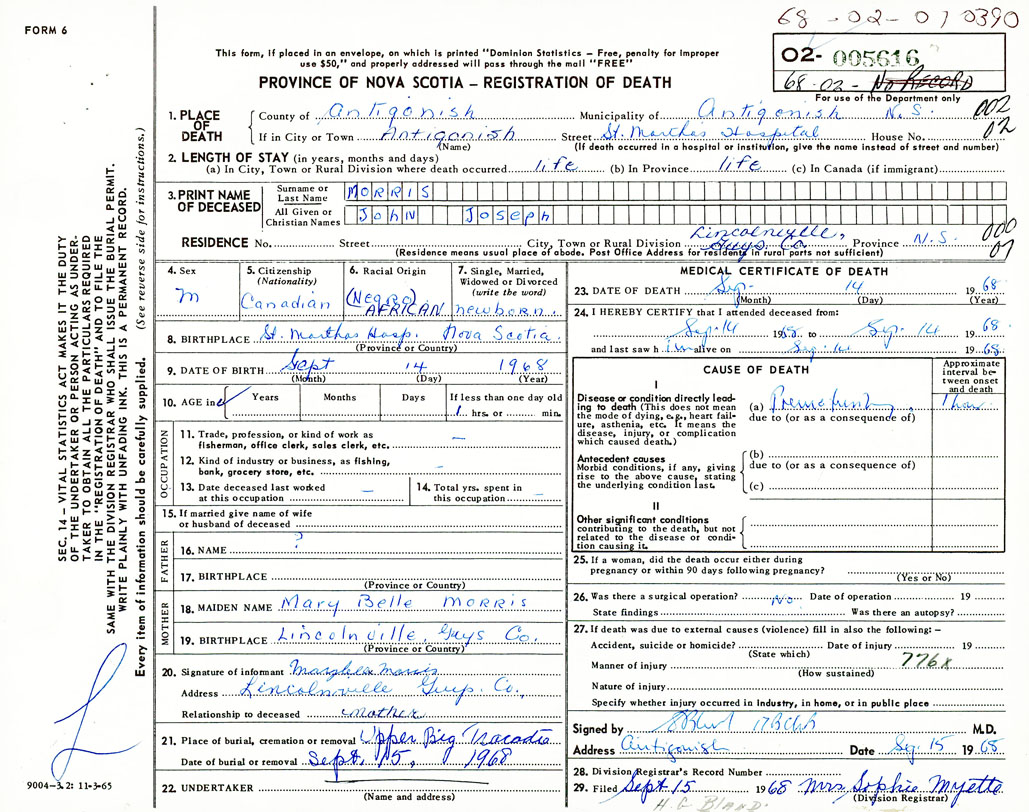 FORM 6
68-02-010390
This form, if placed in an envelope, on which is printed "Dominion Statistics – Free, penalty for improper
use $50," and properly addressed will pass through the mail "FREE"
PROVINCE OF NOVA SCOTIA – REGISTRATION OF DEATH
02- 005616
68-02- No RECORD
For use of the Department only
002
02
1. PLACE OF DEATH
County of Antigonish Municipality of Antigonish N.S.
If in City or Town Antigonish Street St. Marthas Hospital House No.
(Name) (If death occurred in a hospital or institution, give the name instead of street and number)
2. LENGTH OF STAY (in years, months and days)
(a) In City, Town or Rural Division where death occurred life (b) In Province life (c) In Canada (if immigrant)
3. PRINT NAME OF DECEASED
Surname or Last Name MORRIS
All Given or Christian Names JOHN JOSEPH
RESIDENCE No. Street City, Town or Rural Division Lincolnville, Guys Co. Province N.S.
000
07
(Residence means usual place of abode. Post Office Address for residents in rural parts not sufficient)
4. Sex
M
5. Citizenship
(Nationality)
Canadian
6. Racial Origin
(Negro)
AFRICAN
7. Single, Married,
Widowed or Divorced
(write the word)
newborn.
8. BIRTHPLACE St. Marthas Hosp. Nova Scotia
(Province or Country)
9. DATE OF BIRTH Sept 14 1968
(Month) (Day) (Year)
10. AGE in
Years
Months
Days
If less than one day old
1 hrs. or min.
OCCUPATION
11. Trade, profession, or kind of work as
fisherman, office clerk, sales clerk, etc. —
12. Kind of industry or business, as fishing,
bank, grocery store, etc. –
13. Date deceased last worked
at this occupation —
14. Total yrs. spent in
this occupation –
15. If married give name of wife
or husband of deceased
FATHER
16. NAME ?
17. BIRTHPLACE
(Province or Country)
MOTHER
18. MAIDEN NAME Mary Belle MORRIS
19. BIRTHPLACE Lincolnville, Guys Co.
(Province or Country)
20. Signature of informant Morris
Address Lincolnville Guys. Co.,
Relationship to deceased mother
21. Place of burial, cremation or removal Upper Big Tracadie
Date of burial or removal Sept. 15, 1968
22. UNDERTAKER
(Name and address)
MEDICAL CERTIFICATE OF DEATH
23. DATE OF DEATH Sep. 14 1968
(Month) (Day) (Year)
24. I HEREBY CERTIFY that I attended deceased from:
Sep. 14 1968 to Sep. 14 1968
and last saw h im alive on Sep. 14 1968
CAUSE OF DEATH
Approximate interval between onset and death
I
Disease or condition directly leading to death (This does not mean the mode of dying, e.g., heart failure, asthenia, etc. It means the disease, injury, or complication which caused death.)
(a) Prematurity, 1 hour
due to (or as a consequence of)
Antecedent causes
Morbid conditions, if any, giving rise to the above cause, stating the underlying condition last.
(b)
due to (or as a consequence of)
(c)
II
Other significant conditions
contributing to the death, but not related to the disease or condition causing it.
25. If a woman, did the death occur either during
pregnancy or within 90 days following pregnancy?
(Yes or No)
26. Was there a surgical operation? No Date of operation 19
State findings Was there an autopsy?
27. If death was due to external causes (violence) fill in also the following: –
Accident, suicide or homicide? Date of injury 19
(State which)
776X
Manner of injury
(How sustained)
Nature of injury
Specify whether injury occurred in Industry, in home, or in public place
Signed by M.D.
Address Antigonish Date Sep. 15 1968
28. Division Registrar's Record Number
29. Filed Sept 15 1968 Mrs. Sophie Myette
(Division Registrar)
H. C. BLAND.
SEC. 14 – VITAL STATISTICS ACT MAKES IT THE DUTY
OF THE UNDERTAKER OR PERSON ACTING AS UNDERTAKER
TO OBTAIN ALL THE PARTICULARS REQUIRED
IN THE "REGISTRATION OF DEATH" AND FILE THE
SAME WITH THE DIVISION REGISTRAR WHO SHALL ISSUE THE BURIAL PERMIT.
WRITE PLAINLY WITH UNFADING INK. THIS IS A PERMANENT RECORD.
Every item of information should be carefully supplied. (See reverse side for instructions.)
9004-3.2: 11-3-65